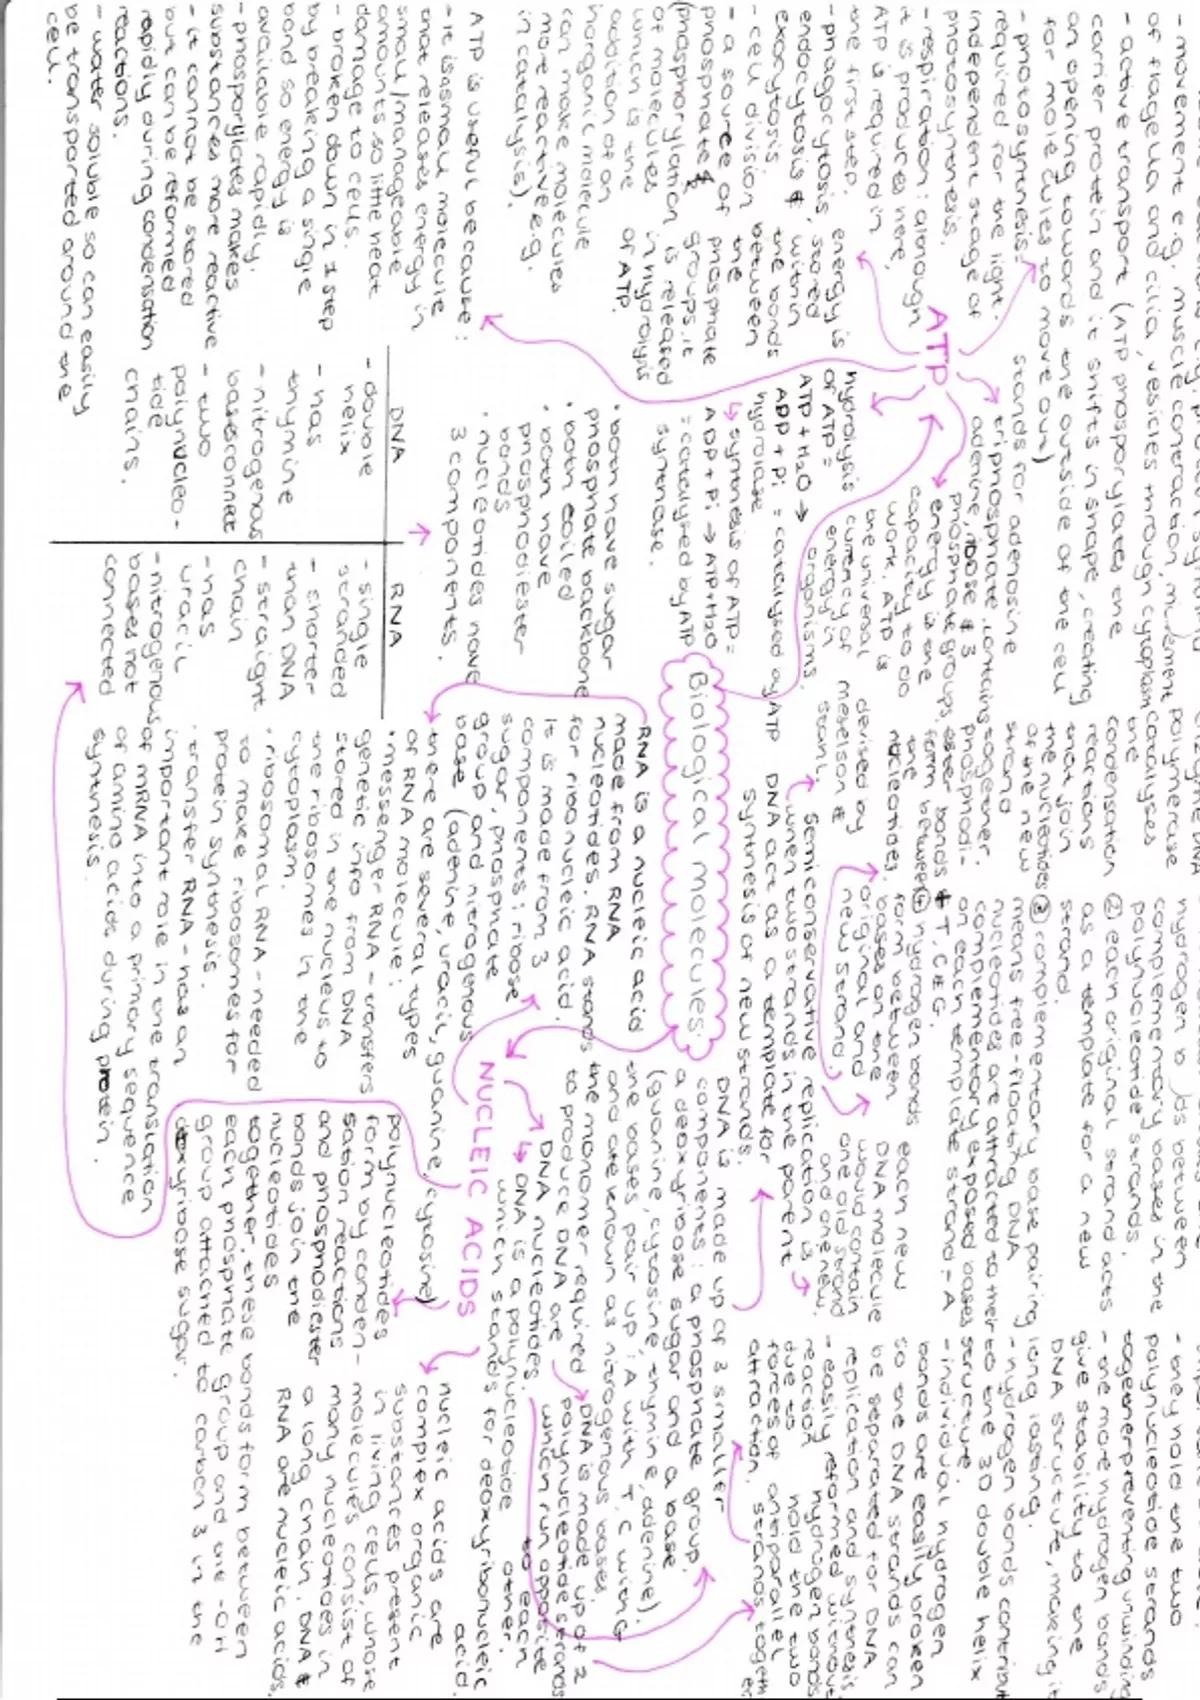 - movement e.g. muscle contraction, movement
of flagella and cilia, vesicles through cytoplasm
- active transport (ATP phosporylates the
carrier protein and it shifts in shape, creating
an opening towards the outside of the cell
for molecules to move out)
- photosynthesis:
required for the light-
independent stage of
photosynthesis.
- respiration: although
it is produced here,
ATP is required in
the first step.
- phagocytosis,
endocytosis &
exocytosis
- cell division
- a source of
phosphate &
(phosphorylation
of molecules
which is the
addition of an
inorganic molecule
can make molecules
more reactive e.g.
in catalysis).
energy is
stored
within
the bonds
between
the
phosphate
groups. it
is released
in hydrolysis
of ATP.
ATP
stands for adenosine
triphosphate. contains
adenine, ribose & 3
phosphate groups.
energy is the
capacity to do
work. ATP is
the universal
currency of
energy in
organisms.
hydrolysis
of ATP =
ATP + H2O →
ADP + Pi = catalysed by ATP
hydrolase
synthesis of ATP =
ADP + Pi → ATP + H2O
= catalysed by ATP
synthase.
ATP is useful because:
- it is a small molecule
that releases energy in
small/manageable
amounts so little heat
damage to cells.
- broken down in 1 step
by breaking a single
bond so energy is
available rapidly.
- phosporylates makes
substances more reactive
- it cannot be stored
but can be reformed
rapidly during condensation
reactions.
- water soluble so can easily
be transported around the
cell.
DNA
- double
helix
- has
thymine
- nitrogenous
bases connect
- two
polynucleo-
tide
chains.
RNA
- single
stranded
- shorter
than DNA
- straight
chain
- has
uracil
- nitrogenous
bases not
connected
• both have sugar
phosphate backbone
• both coiled
• both have
phosphodiester
bonds
• nucleotides have
3 components.
Biological molecules:
RNA is a nucleic acid
made from RNA
nucleotides. RNA stands
for ribonucleic acid.
It is made from 3
components: ribose
sugar, phosphate
group and nitrogenous
base (adenine, uracil, guanine, cytosine)
there are several types
of RNA molecule:
• messenger RNA - transfers
genetic info from DNA
stored in the nucleus to
the ribosomes in the
cytoplasm.
• ribosomal RNA - needed
to make ribosomes for
protein synthesis.
• transfer RNA - has an
important role in the translation
of mRNA into a primary sequence
of amino acids during protein
synthesis.
polymerase
catalyses
the
condensation
reactions
that join
the nucleotides
of the new
strand
together.
phosphodi-
ester bonds
form between
the
nucleotides.
devised by
meselson &
stahl.
hydrogen bonds between
complementary bases in the
polynucleotide strands.
② each original strand acts
as a template for a new
strand.
③ complementary base pairing
means free-floating DNA
nucleotides are attracted to their
complementary exposed bases
on each template strand - A
& T, C & G.
④ hydrogen bonds
form between
bases on the
original and
new strand.
each new
DNA molecule
would contain
one old strand
and one new.
semiconservative replication is
when two strands in the parent
DNA act as a template for
synthesis of new strands.
- they hold the two
polynucleotide strands
together preventing unwinding
- the more hydrogen bonds
give stability to the
DNA structure, making it
long lasting.
- hydrogen bonds contribute
to the 3D double helix
structure.
- individual hydrogen
bonds are easily broken
so the DNA strands can
be separated for DNA
replication and synthesis
- easily reformed without
reaction
due to
forces of
attraction.
hydrogen bonds
hold the two
antiparallel
strands together
DNA is made up of 3 smaller
components: a phosphate group,
a deoxyribose sugar and a base.
(guanine, cytosine, thymine, adenine).
the bases pair up: A with T, C with G
and are known as nitrogenous bases.
the monomer required
to produce DNA are
DNA nucleotides.
DNA is made up of 2
polynucleotide strands
which run opposite
to each
other.
DNA is a polynucleotide
which stands for deoxyribonucleic
acid.
NUCLEIC ACIDS
nucleic acids are
complex organic
substances present
in living cells, whose
molecules consist of
many nucleotides in
a long chain. DNA &
RNA are nucleic acids.
polynucleotides
form by conden-
sation reactions
and phosphodiester
bonds join the
nucleotides
together. these bonds form between
each phosphate group and the -OH
group attached to carbon 3 in the
deoxyribose sugar.